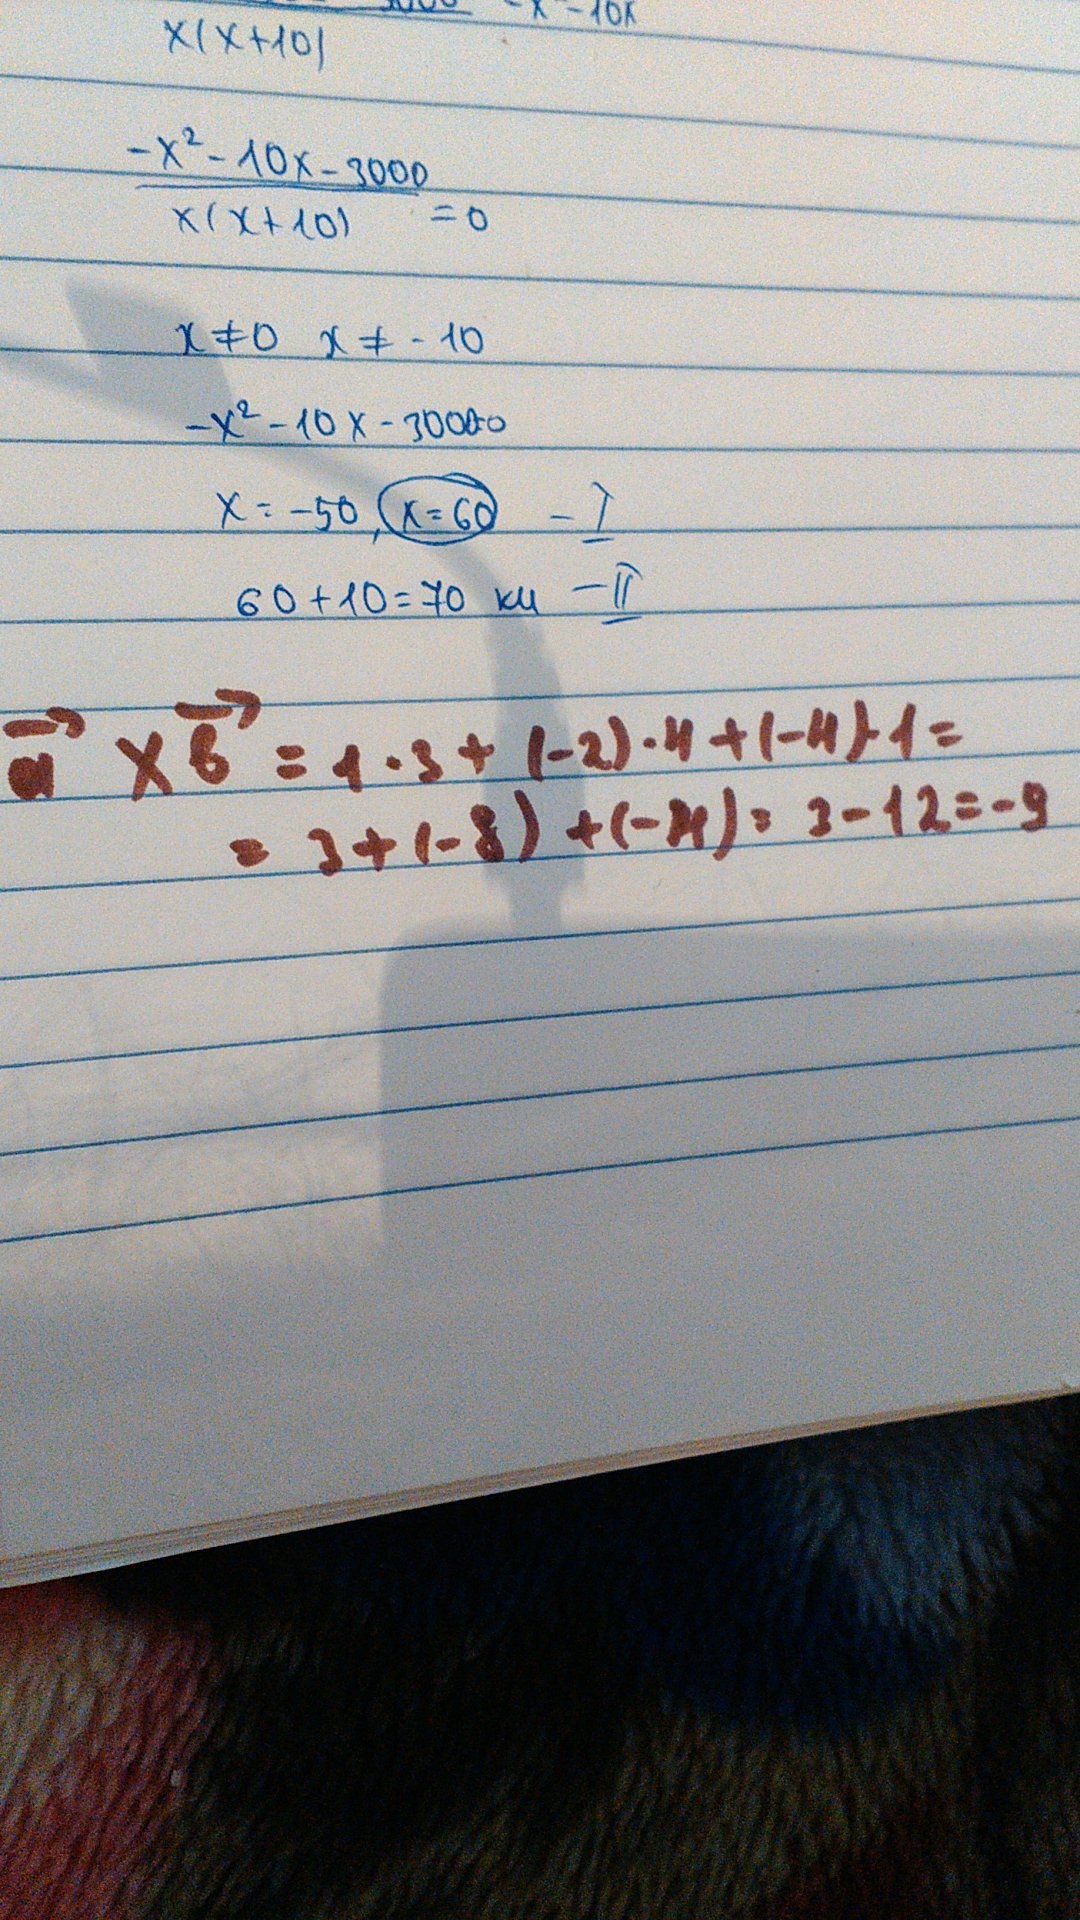 -x²-10x
x(x+10)
-x²-10x-3000
x(x+10) =0
x≠0 x≠-10
-x²-10x-3000=0
x=-50, x=60 - I
60+10=70 км - II
a⃗ × b⃗ = 1·3+(-2)·4+(-4)·1=
= 3+(-8)+(-4)= 3-12=-9